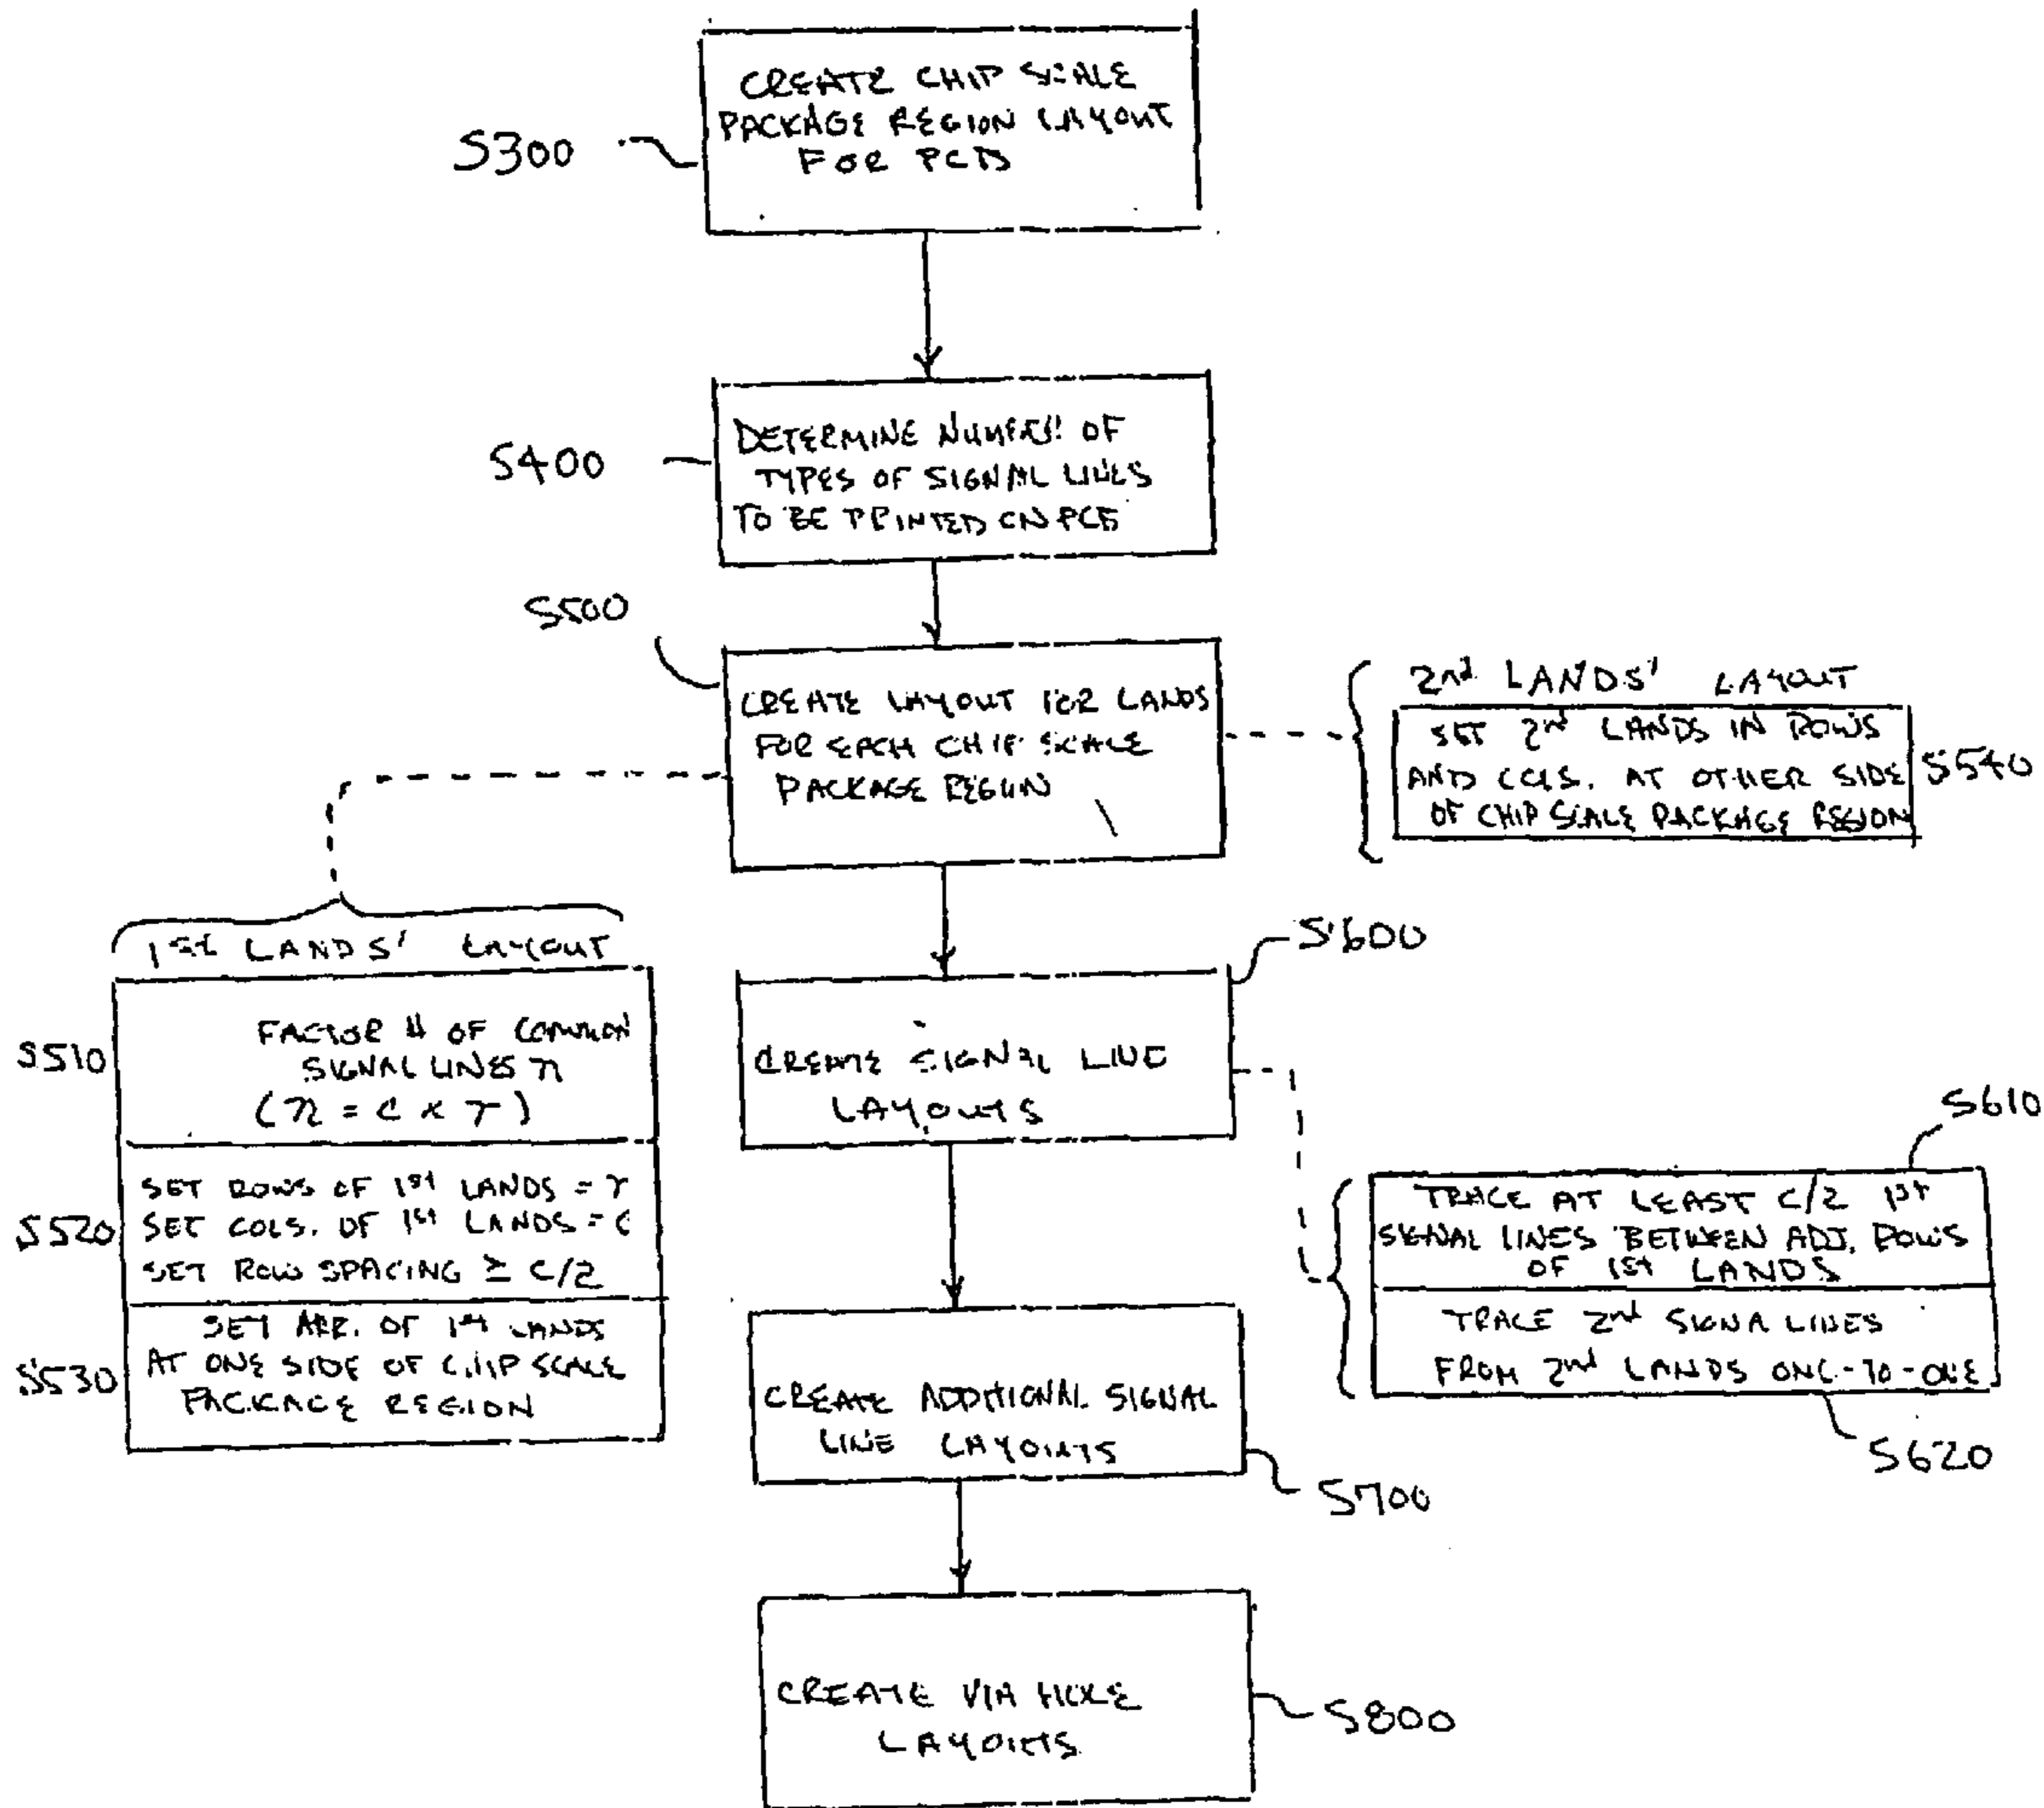 CREATE CHIP SCALE
PACKAGE REGION LAYOUT
FOR PCB
S300
DETERMINE NUMBER OF
TYPES OF SIGNAL LINES
TO BE PRINTED ON PCB
S400
S500
CREATE LAYOUT FOR LANDS
FOR EACH CHIP SCALE
PACKAGE REGION
2nd LANDS' LAYOUT
SET 2nd LANDS IN ROWS
AND COLS. AT OTHER SIDE
OF CHIP SCALE PACKAGE REGION
S540
1st LANDS' LAYOUT
S510
FACTOR # OF COMMON
SIGNAL LINES n
(n = c x r)
S520
SET ROWS OF 1st LANDS = r
SET COLS. OF 1st LANDS = c
SET ROW SPACING ≥ c/2
S530
SET ARR. OF 1st LANDS
AT ONE SIDE OF CHIP SCALE
PACKAGE REGION
S600
CREATE SIGNAL LINE
LAYOUTS
S610
TRACE AT LEAST C/2 1st
SIGNAL LINES BETWEEN ADJ. ROWS
OF 1st LANDS
TRACE 2nd SIGNA LINES
FROM 2nd LANDS ONE-TO-ONE
S620
CREATE ADDITIONAL SIGNAL
LINE LAYOUTS
S700
CREATE VIA HOLE
LAYOUTS
S800